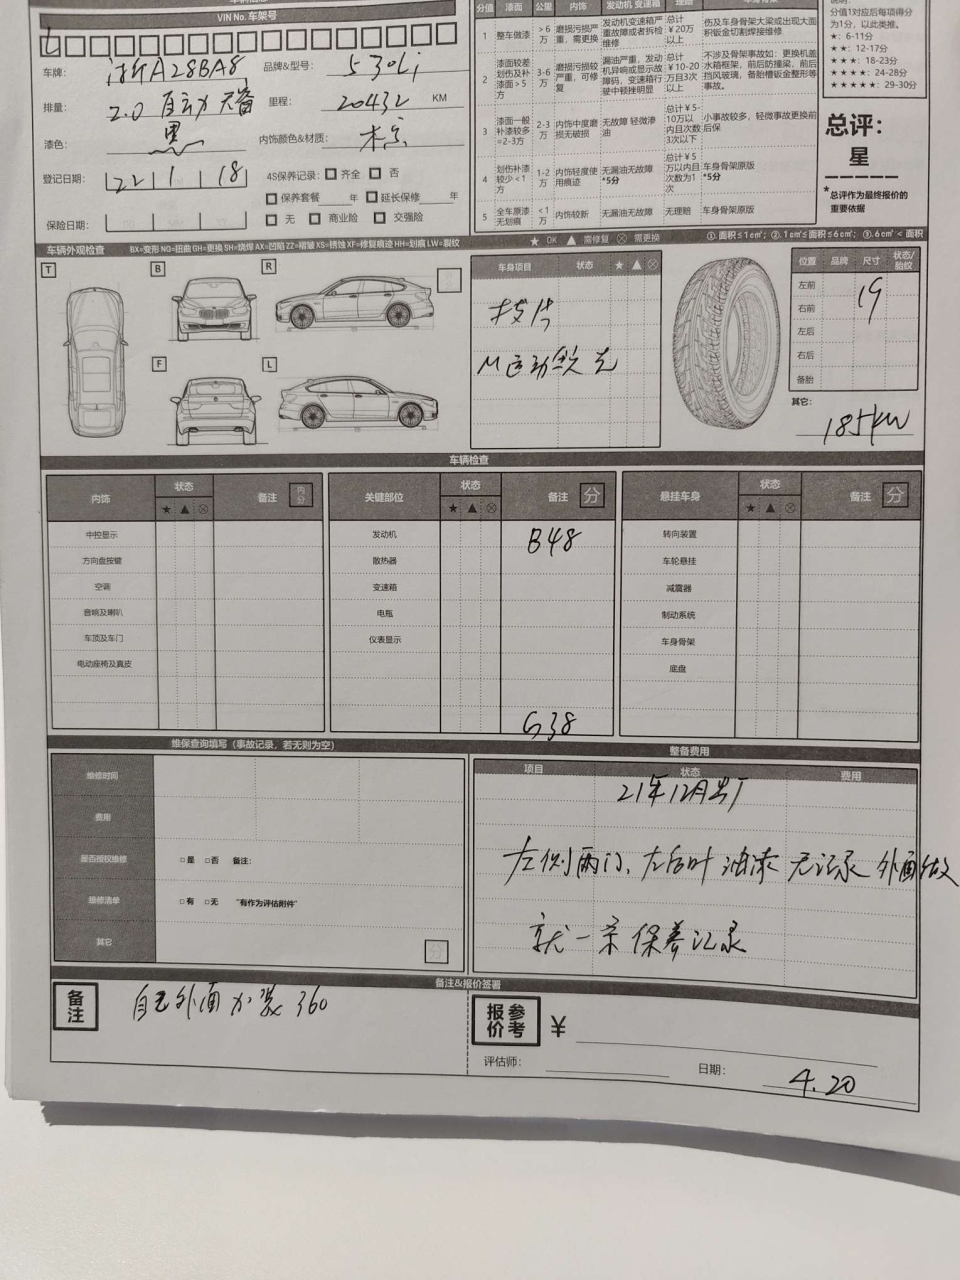 VIN No. 车架号
车牌： 浙A28BA8 品牌&型号： 530Li
排量： 2.0 自动 天窗 里程： 20432 KM
漆色： 黑 内饰颜色&材质： 棕
登记日期： 22 1 18 4S保养记录： 齐全 否
保养套餐 年 延长保修 年
保险日期： 无 商业险 交强险
分值 漆面 公里 内饰 发动机 变速箱
1 整车做漆 >6万 磨损污损严重，需更换 发动机变速箱严重故障或者拆检维修 总计￥20万以上 伤及车身骨架大梁或出现大面积钣金切割焊接维修
2 漆面较差划伤及补漆面>5方 3-6万 磨损污损较严重，可修复 漏油严重，发动机异响或显示故障码，变速箱行驶中顿挫明显 总计￥10-20万且3次以上 不涉及骨架事故如：更换机盖水箱框架，前后防撞梁，前后挡风玻璃，备胎槽钣金整形等事故。
3 漆面一般补漆较多=2-3方 2-3万 内饰中度磨损无破损 无故障 轻微渗油 总计￥5-10万以内且次数3次以下 小事故较多，轻微事故更换前后保
4 划伤补漆较少<1方 1-2万 内饰轻度使用痕迹 无漏油无故障*5分 总计￥5万以内且次数为1次 车身骨架原版*5分
5 全车原漆无划痕 <1万 内饰较新 无漏油无故障 无理赔 车身骨架原版
分值1对应后每项得分为1分，以此类推。
★：6-11分
★★：12-17分
★★★：18-23分
★★★★：24-28分
★★★★★：29-30分
总评：
星
*总评作为最终报价的重要依据
车辆外观检查 BX=变形 NQ=扭曲 GH=更换 SH=烧焊 AX=凹陷 ZZ=褶皱 XS=锈蚀 XF=修复痕迹 HH=划痕 LW=裂纹
★ OK ▲ 需修复 ⊗ 需更换 ①.面积≤1cm²；②.1cm²≤面积≤6cm²；③.6cm²<面积
T B R
F L
车身项目 状态 ★ ▲ ⊗
M运动
位置 品牌 尺寸 状态/胎纹
左前
右前
左后
右后
备胎
19
其它：
185kw
车辆检查
内饰 状态 备注 内分
★ ▲ ⊗
中控显示
方向盘按键
空调
音响及喇叭
车顶及车门
电动座椅及真皮
关键部位 状态 备注 分
★ ▲ ⊗
发动机 B48
散热器
变速箱
电瓶
仪表显示
G38
悬挂车身 状态 备注 分
★ ▲ ⊗
转向装置
车轮悬挂
减震器
制动系统
车身骨架
底盘
维保查询填写（事故记录，若无则为空）
维修时间
费用
是否授权维修 □是 □否 备注：
维修清单 □有 □无 "有作为评估附件"
其它 分
整备费用
项目 状态 费用
21年12月出厂
左侧两门、左后叶 油漆 无记录 外面做
就一条保养记录
备注&报价签署
备注 自己外面加装360
报价参考 ￥
评估师： 日期： 4.20